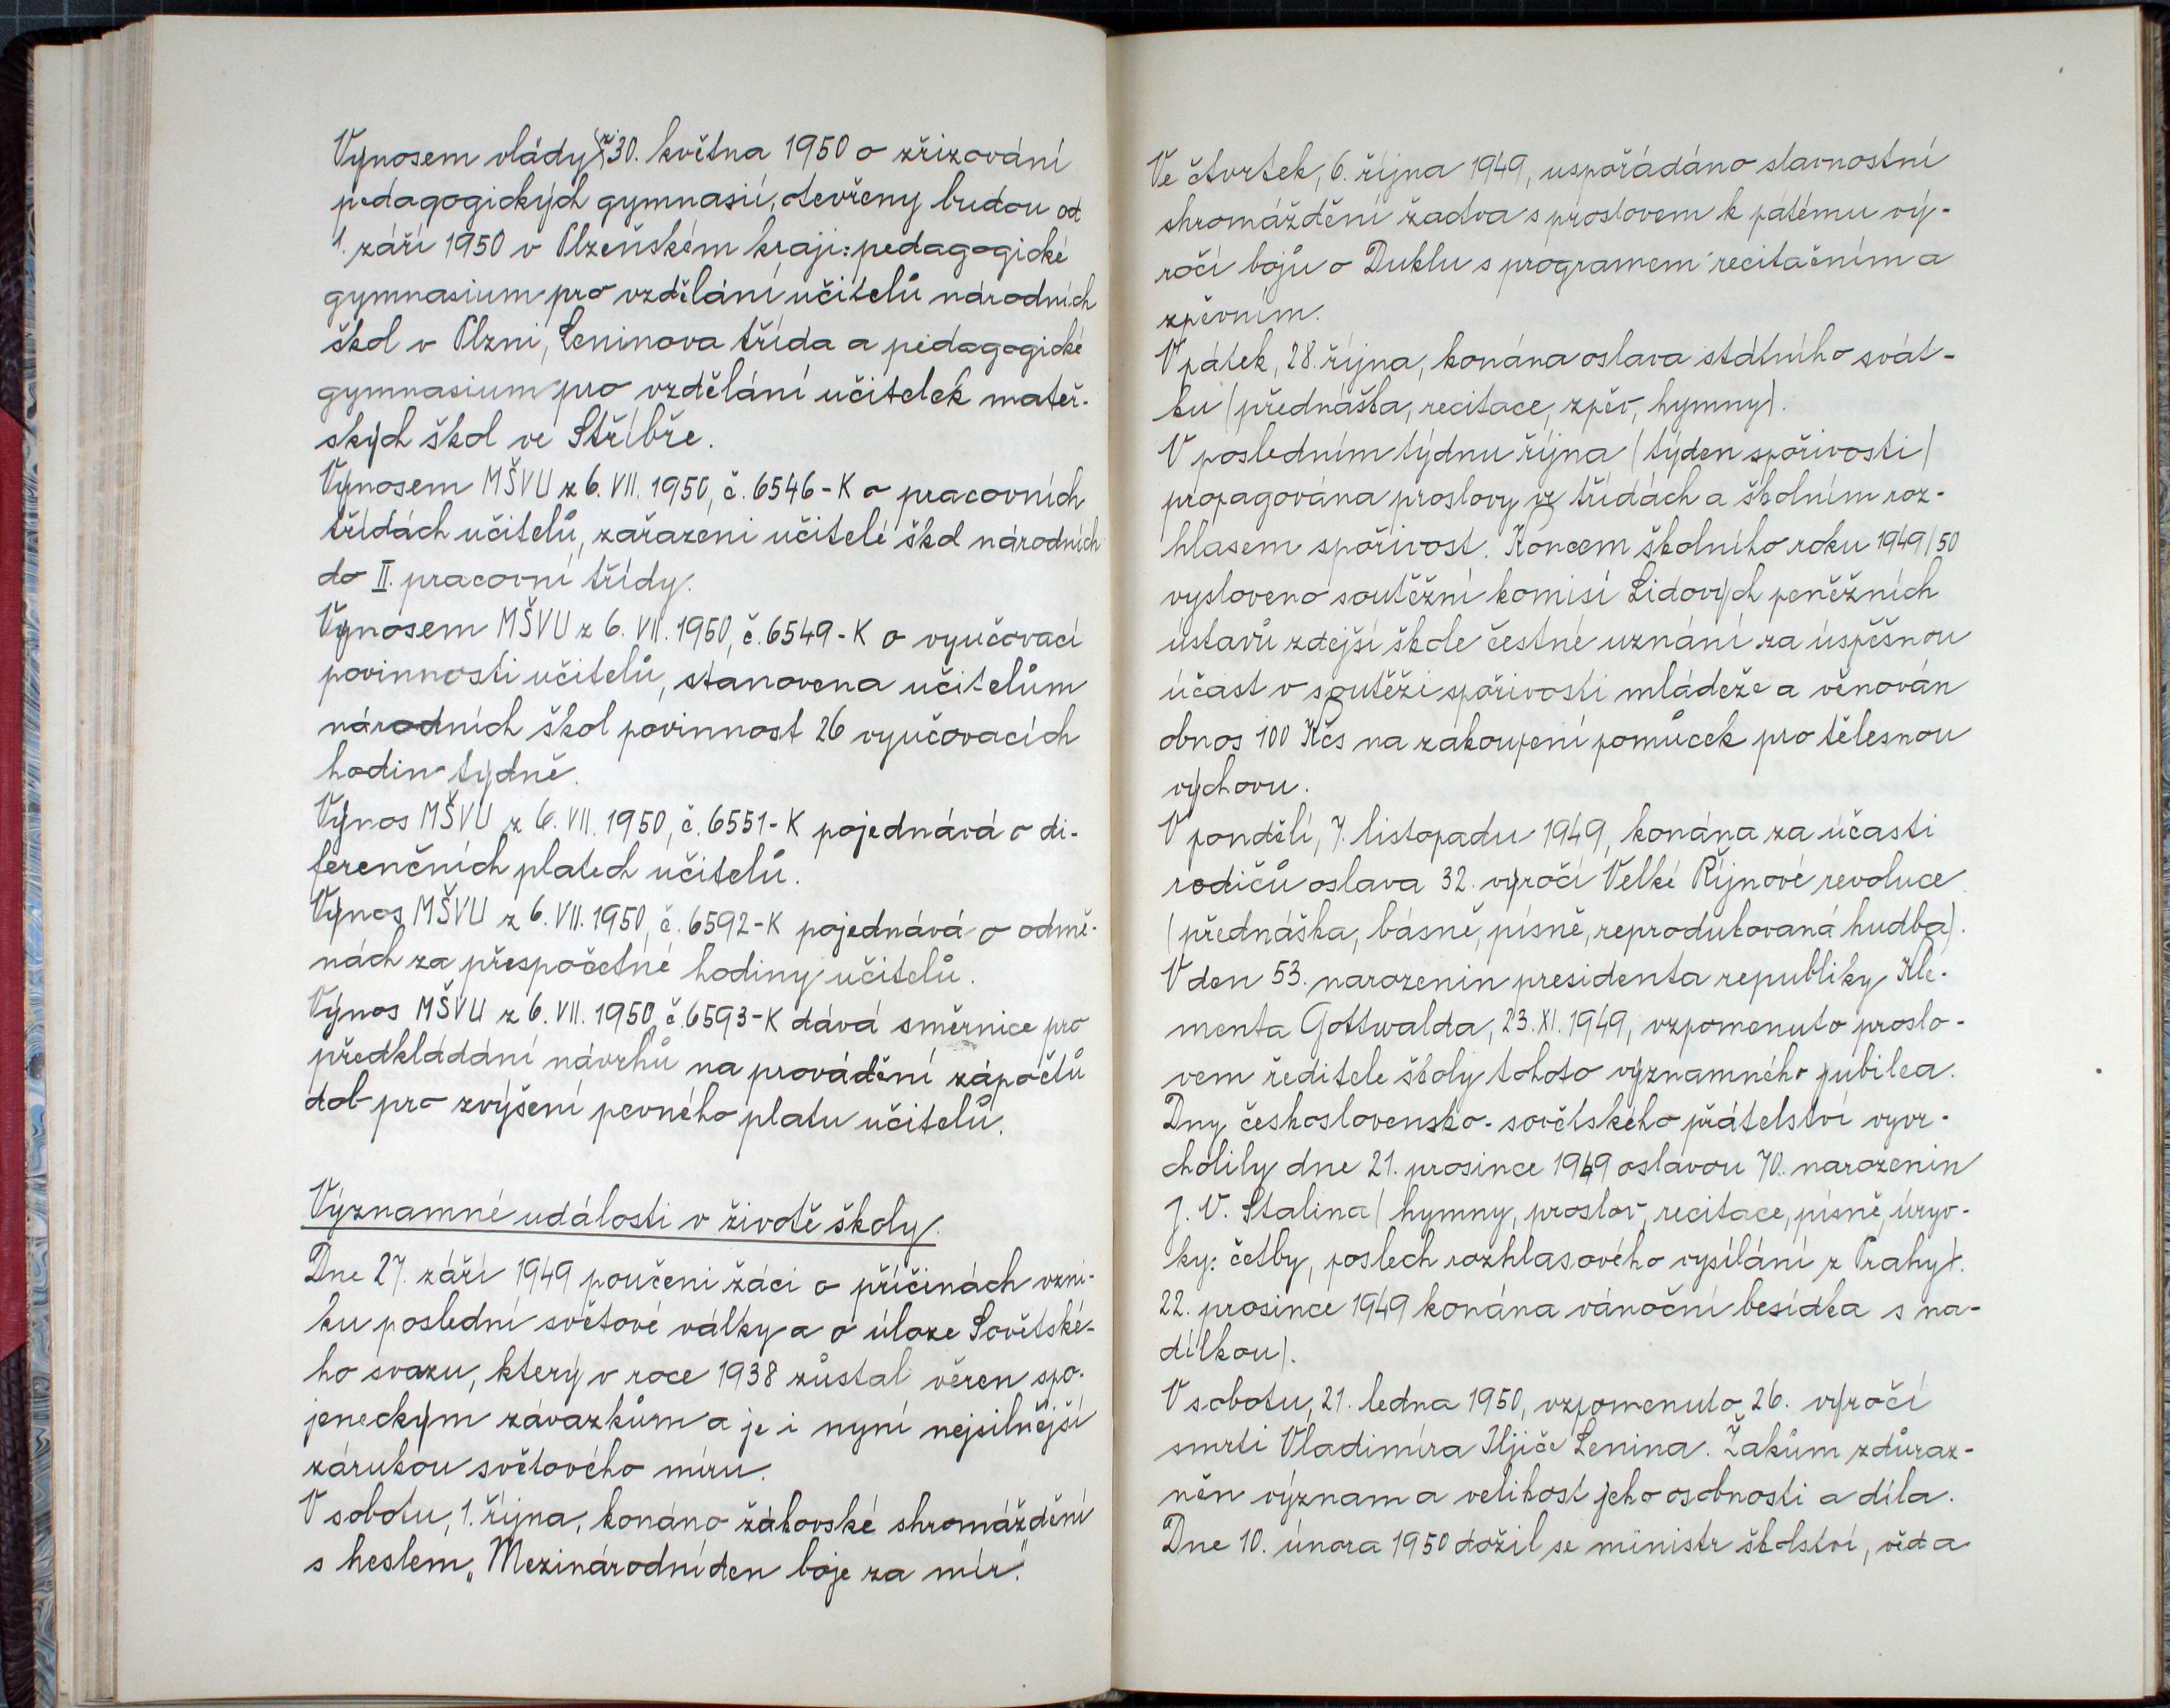 Výnosem vlády z 30. května 1950 o zřizování
pedagogických gymnasií, otevřeny budou od
1. září 1950 v Plzeňském kraji: pedagogické
gymnasium pro vzdělání učitelů národních
škol v Plzni, Leninova třída a pedagogické
gymnasium pro vzdělání učitelek mateř-
ských škol ve Stříbře.
Výnosem MŠVU z 6. VII. 1950, č. 6546-K o pracovních
třídách učitelů, zařazeni učitelé škol národních
do II. pracovní třídy.
Výnosem MŠVU z 6. VII. 1950, č. 6549-K o vyučovací
povinnosti učitelů, stanovena učitelům
národních škol povinnost 26 vyučovacích
hodin týdně.
Výnos MŠVU z 6. VII. 1950, č. 6551-K pojednává o di-
ferenčních platech učitelů.
Výnos MŠVU z 6. VII. 1950, č. 6592-K pojednává o odmě-
nách za přespočetné hodiny učitelů.
Výnos MŠVU z 6. VII. 1950, č. 6593-K dává směrnice pro
předkládání návrhů na provádění zápočtů
dob pro zvýšení pevného platu učitelů.
Významné události v životě školy.
Dne 27. září 1949 poučeni žáci o příčinách vzni-
ku poslední světové války a o úloze Sovětské-
ho svazu, který v roce 1938 zůstal věren spo-
jeneckým závazkům a je i nyní nejsilnější
zárukou světového míru.
V sobotu, 1. října, konáno žákovské shromáždění
s heslem „Mezinárodní den boje za mír."
Ve čtvrtek, 6. října 1949, uspořádáno slavnostní
shromáždění žactva s proslovem k pátému vý-
ročí bojů o Duklu s programem recitačním a
zpěvním.
V pátek, 28. října, konána oslava státního svát-
ku (přednáška, recitace, zpěv, hymny).
V posledním týdnu října (týden spořivosti)
propagována proslovy ve třídách a školním roz-
hlasem spořivost. Koncem školního roku 1949/50
vysloveno soutěžní komisí Lidových peněžních
ústavů zdejší škole čestné uznání za úspěšnou
účast v soutěži spořivosti mládeže a věnován
obnos 100 Kčs na zakoupení pomůcek pro tělesnou
výchovu.
V pondělí, 7. listopadu 1949, konána za účasti
rodičů oslava 32. výročí Velké Říjnové revoluce
(přednáška, básně, písně, reprodukovaná hudba).
V den 53. narozenin presidenta republiky Kle-
menta Gottwalda, 23. XI. 1949, vzpomenuto proslo-
vem ředitele školy tohoto významného jubilea.
Dny československo-sovětského přátelství vyvr-
cholily dne 21. prosince 1949 oslavou 70. narozenin
J. V. Stalina (hymny, proslov, recitace, písně, úryv-
ky: četby, poslech rozhlasového vysílání z Prahy).
22. prosince 1949 konána vánoční besídka s na-
dílkou).
V sobotu, 21. ledna 1950, vzpomenuto 26. výročí
smrti Vladimíra Iljiče Lenina. Žákům zdůraz-
něn význam a velikost jeho osobnosti a díla.
Dne 10. února 1950 dožil se ministr školství, věd a